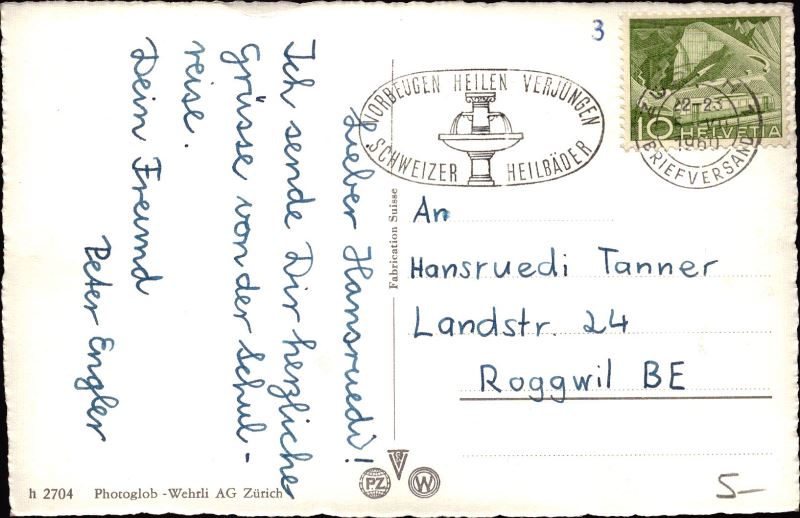 Lieber Hansruedi!
Ich sende Dir herzliche
Grüsse von der Schul-
reise.
Dein Freund
Peter Engler
3
VORBEUGEN HEILEN VERJÜNGEN
SCHWEIZER HEILBÄDER
22-23
1960
BRIEFVERSAND
10 HELVETIA
Fabrication Suisse
An
Hansruedi Tanner
Landstr. 24
Roggwil BE
h 2704 Photoglob-Wehrli AG Zürich
P.Z.
W
5-